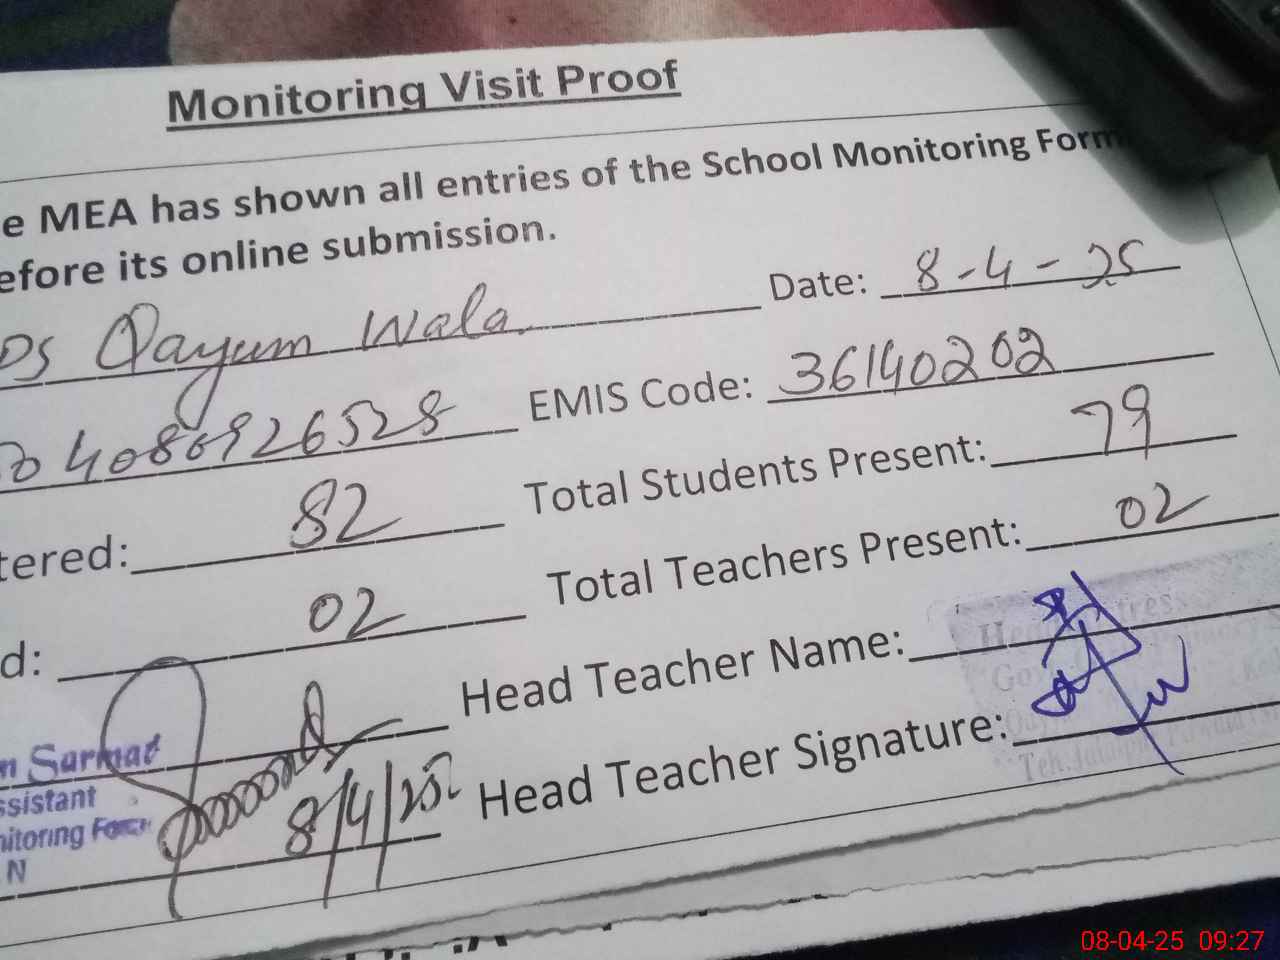 Monitoring Visit Proof
e MEA has shown all entries of the School Monitoring Form
efore its online submission.
Ds Qayum Wala Date: 8-4-25
04086926528 EMIS Code: 36140202
tered: 82 Total Students Present: 79
d: 02 Total Teachers Present: 02
Head Teacher Name:
Head Teacher Signature:
n Sarmad
ssistant
nitoring Force
N
8/4/25
Teh.
08-04-25 09:27